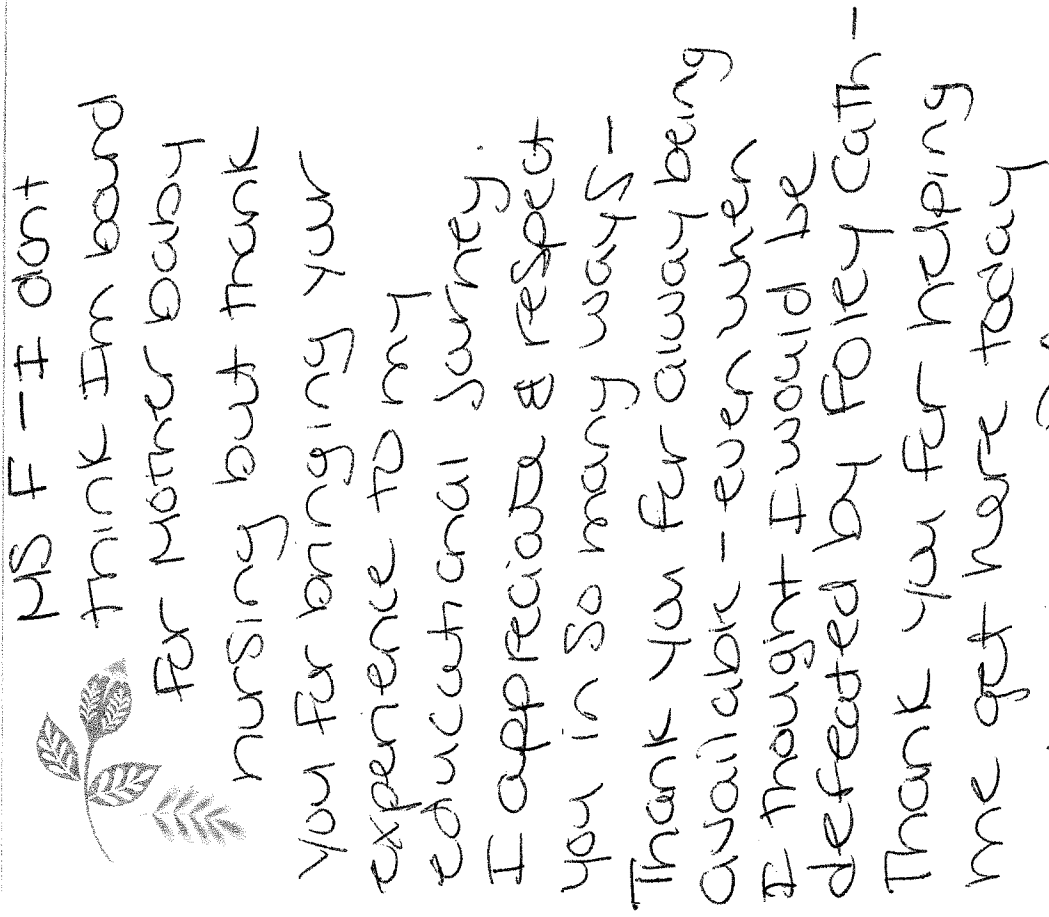 MS F - I dont
think Im bound
for Mother baby
nursing but thank
you for bringing your
experience to my
educational journey.
I appreciate & respect
you in so many ways -
Thank you for alway being
available - even when
I thought I would be
defeated by foley cath -
Thank you for helping
me get here today